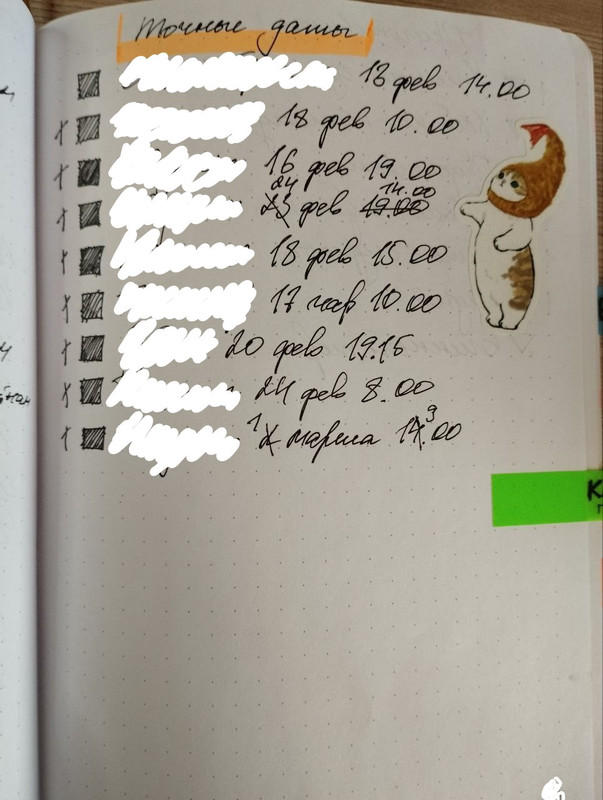 Точные даты
13 фев 14.00
18 фев 10.00
16 фев 19.00
24 14.00
23 фев 19.00
18 фев 15.00
17 10.00
20 фев 19.15
24 фев 8.00
1 марта 9.00
К